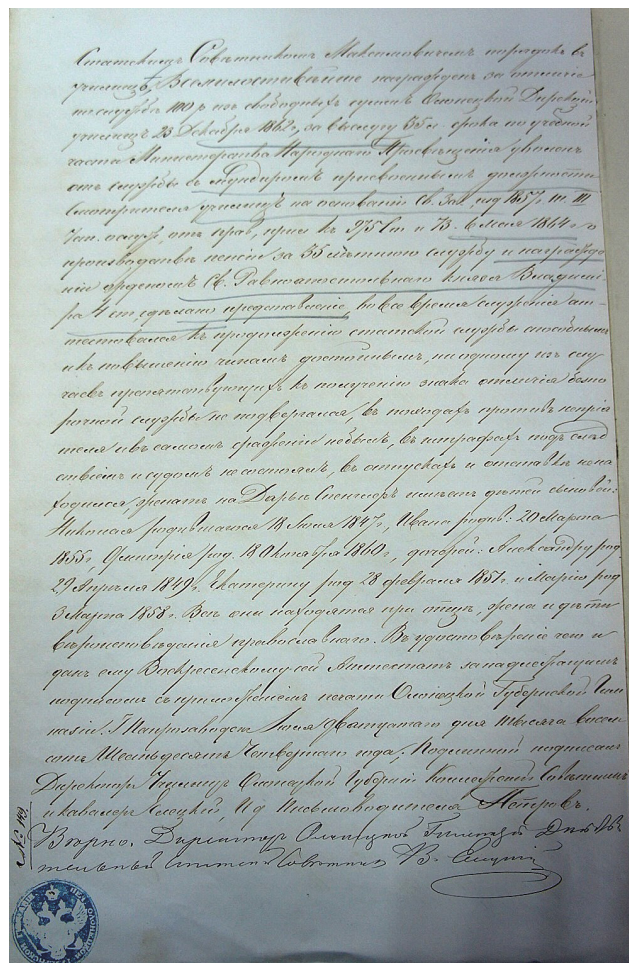 Статскимъ Совѣтникомъ Максимовичемъ порядокъ въ
училищѣ, Всемилостивѣйше награжденъ за отличіе
по службѣ 100 р. изъ свободныхъ суммъ Олонецкой Дирекціи
училищъ 23 Декабря 1862 г., за выслугу 35 л. срока по учебной
части Министерства Народнаго Просвѣщенія уволенъ
отъ службы съ мундиромъ присвоеннымъ должности
Смотрителя училищъ на основаніи Св. Зак. изд. 1857 г. т. III
прав. къ 975 ст. и 13. 6 мая 1864 г. о
производствѣ пенсіи за 35 лѣтнюю службу и награжде-
ніи орденомъ Св. Равноапостольнаго князя Владимі-
ра 4 ст. сдѣлано представленіе, во все время служенія ат-
тестовался къ продолженію статской службы способнымъ
и къ повышенію чиномъ достойнымъ, ни одному изъ слу-
чаевъ препятствующихъ къ полученію знака отличія безпо-
рочной службы не подвергался, въ походахъ противъ непрія-
теля и въ самомъ сраженіи не былъ, въ штрафахъ подъ слѣд-
ствіемъ и судомъ не состоялъ, въ отпускахъ и отставкѣ не на-
ходился, женатъ на Дарьѣ имѣетъ дѣтей сыновей:
Николая родившагося 18 Іюля 1847 г., Ивана родив: 20 Марта
1855, Димитрія род. 18 Октября 1860 г., дочерей: Александру род
29 Апрѣля 1849 г. Екатерину род 28 февраля 1851 г. и Марію род
3 Марта 1858 г. Всѣ они находятся при отцѣ, жена и дѣти
вѣроисповѣданія православнаго. Въ удостовѣреніе чего и
данъ ему Воскресенскому сей Аттестатъ за надлежащимъ
подписомъ съ приложеніемъ печати Олонецкой Губернской Гим-
назіи. Г. Петрозаводскъ Іюля двадцатаго дня тысяча восем-
сотъ Шестьдесятъ Четвертаго года. Подлинный подписалъ
Директоръ Училищъ Олонецкой Губерніи Коллежскій Совѣтникъ
и кавалеръ Елецкій, И д Письмоводителя Петровъ.
Вѣрно. Директоръ Олонецкой Гимназіи Дѣй-
ствительный Статскій Совѣтникъ В. Елецкій